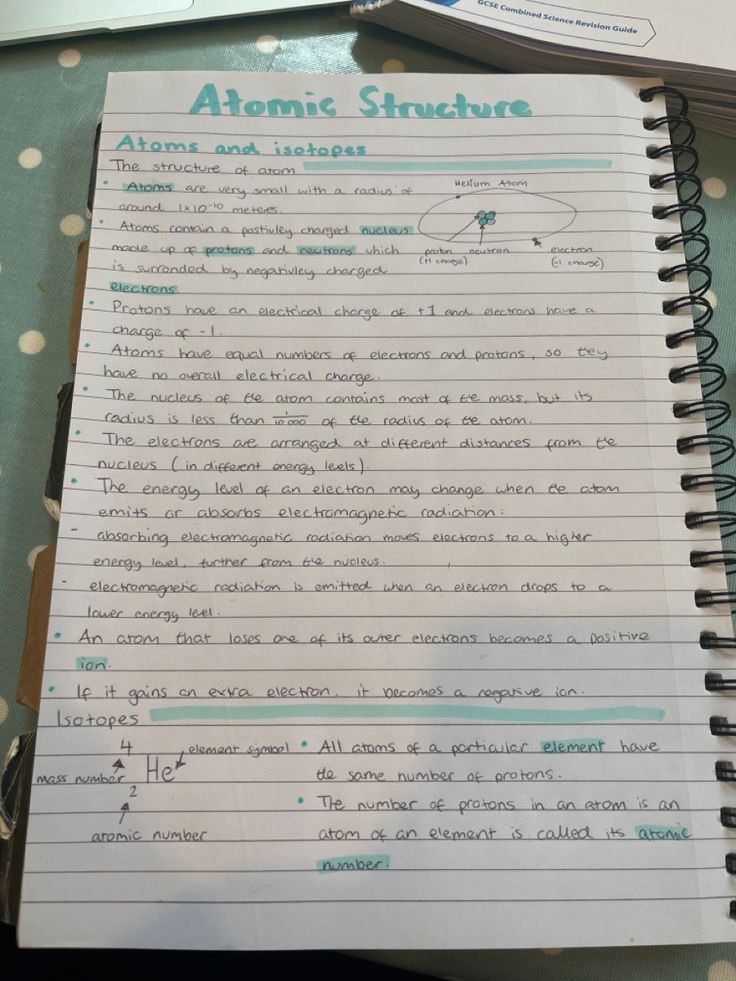 GCSE Combined Science Revision Guide
Atomic Structure
Atoms and isotopes
The structure of atom
• Atoms are very small with a radius of
around 1x10⁻¹⁰ meters.
• Atoms contain a postivley charged nucleus
made up of protons and neutrons which
is surronded by negativley charged
electrons.
Helium Atom
proton
(+1 charge)
neutron
electron
(-1 charge)
• Protons have an electrical charge of +1 and electrons have a
charge of -1.
• Atoms have equal numbers of electrons and protons, so they
have no overall electrical charge.
• The nucleus of the atom contains most of the mass, but its
radius is less than 1/10000 of the radius of the atom.
• The electrons are arranged at different distances from the
nucleus (in different energy levels).
• The energy level of an electron may change when the atom
emits or absorbs electromagnetic radiation:
- absorbing electromagnetic radiation moves electrons to a higher
energy level, further from the nucleus.
- electromagnetic radiation is emitted when an electron drops to a
lower energy level.
• An atom that loses one of its outer electrons becomes a positive
ion.
• If it gains an extra electron, it becomes a negative ion.
Isotopes
4
element symbol
mass number
He
2
atomic number
• All atoms of a particular element have
the same number of protons.
• The number of protons in an atom is an
atom of an element is called its atomic
number.